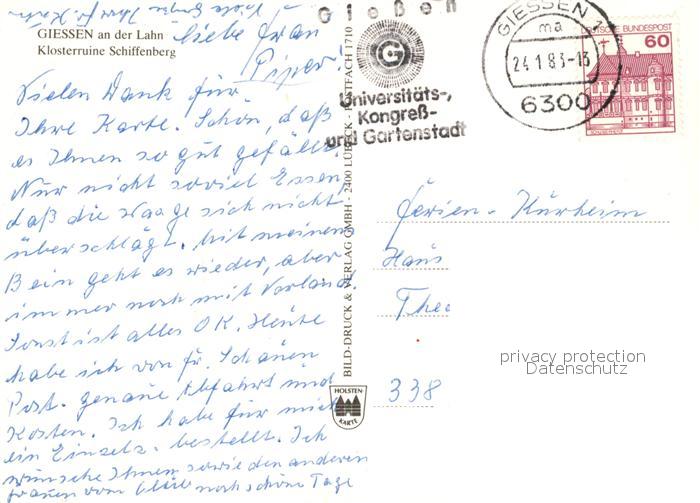 GIESSEN an der Lahn
Klosterruine Schiffenberg
Liebe Frau
Piper!
Vielen Dank für
Ihre Karte. Schön, daß
es Ihnen so gut gefällt.
Nur nicht soviel Essen,
daß die Waage sich nicht
überschlägt. Mit meinem
Bein geht es wieder, aber
immer noch mit Verband.
Sonst ist alles OK. Heute
habe ich von Fr. Schauen
Post. genaue Abfahrt und
Kosten. Ich habe für mich
ein Einzelz. bestellt. Ich
wünsche Ihnen sowie den anderen
Frauen vom noch schöne Tage
Viele Grüße Ihre Fr. Kahn
BILD-DRUCK & VERLAG GMBH · 2400 LÜBECK · POSTFACH 1710
HOLSTEN
KARTE
Gießen
G
Universitäts-,
Kongreß-
und Gartenstadt
GIESSEN 1
ma
24.1.83-13
6300
DEUTSCHE BUNDESPOST
60
Ferien-Kurheim
Haus
Theo
338
privacy protection
Datenschutz